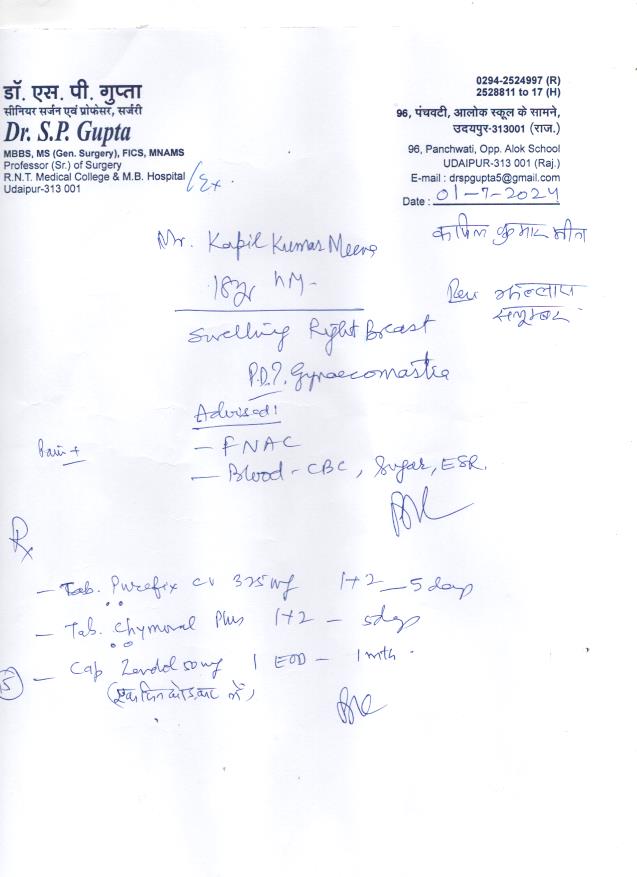 डॉ. एस. पी. गुप्ता
सीनियर सर्जन एवं प्रोफेसर, सर्जरी
Dr. S.P. Gupta
MBBS, MS (Gen. Surgery), FICS, MNAMS
Professor (Sr.) of Surgery
R.N.T. Medical College & M.B. Hospital
Udaipur-313 001
/Ex.
0294-2524997 (R)
2528811 to 17 (H)
96, पंचवटी, आलोक स्कूल के सामने,
उदयपुर-313001 (राज.)
96, Panchwati, Opp. Alok School
UDAIPUR-313 001 (Raj.)
E-mail : drspgupta5@gmail.com
Date : 01-7-2024
Mr. Kapil Kumar Meena
कपिल कुमार मीना
18yr
सलूम्बर
Swelling Right Breast
P.D?. Gynaecomastia
Advised:
Pain +
- FNAC
- Blood - CBC, Sugar, ESR.
Rx
- Tab. Purefix CV 325mg 1+2 - 5 days
- Tab. Chymoral Plus 1+2 - 5days
15 - Cap Zendol 50mg 1 EOD - 1 mth.
(एक दिन छोड़कर लें)